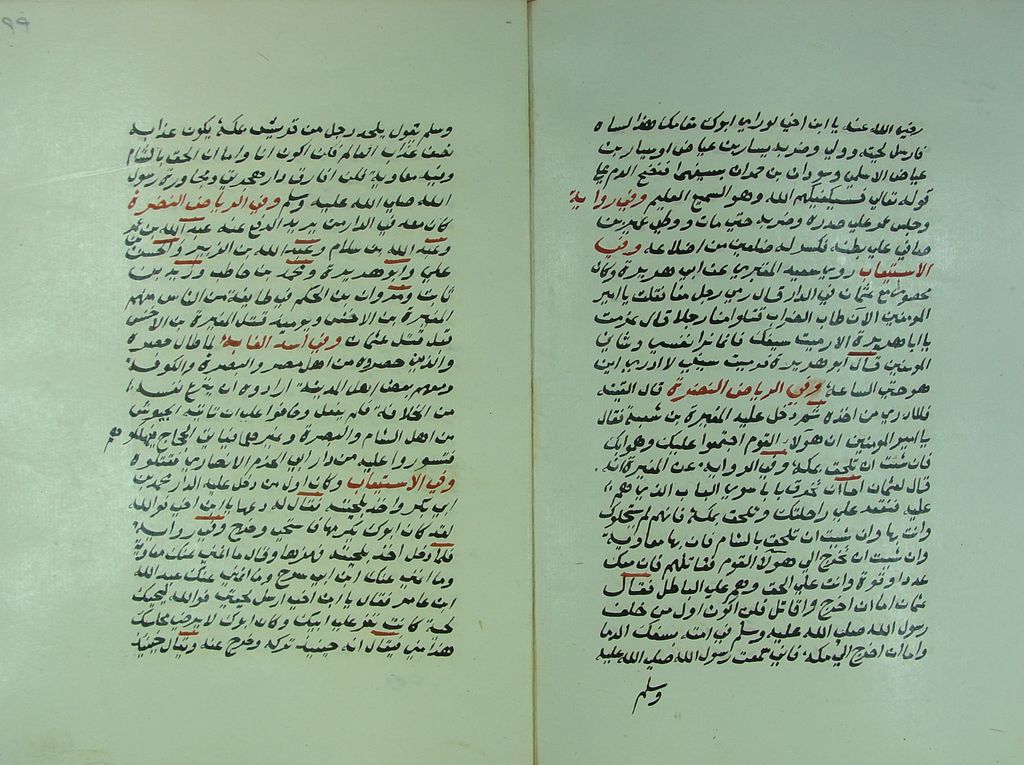 رضي الله عنه يا ابن اخي لو راي ابوك مقامك هذا لساه
فارسل لحيته وولي وضربه يسار بن عياض او سيار بن
عياض الاسلمي وسودان بن حمران بسيفهما فنضح الدم علي
قوله تعالي فسيكفيكهم الله وهو السميع العليم وفي رواية
وجلس عمرو علي صدره وضربه حتي مات ووطي عمير بن
صابي علي بطنه فكسر له ضلعين من اضلاعه وفي
الاستيعاب روي سعيد المقبري عن ابي هريرة وكان
محصورا مع عثمان في الدار قال رمي رجل منا فقلت يا امير
المومنين الان طاب الضراب قتلوا منا رجلا قال عزمت
يا ابا هريرة الا رميت سيفك فانما تراد نفسي وساقي
المومنين قال ابو هريرة فرميت سيفي لا ادري اين
هو حتي الساعة وفي الرياض النضرة قال
فلا ادري من اخذه ثم دخل عليه المغيرة بن شعبة فقال
يا امير المومنين ان هولاء القوم اجتمعوا عليك وهموا بك
فان شئت ان تلحق بمكة وفي الرواية عن المغيرة انه
قال لعثمان اما ان تخرق بابا سوي الباب الذي هم
عليه فتقعد علي راحلتك وتلحق بمكة فانهم لم يستحلوك
وانت بها وان شئت ان تلحق بالشام فان بها معاوية
وان شئت ان تخرج الي هولاء القوم فقاتلهم فان معك
عددا وقوة وانت علي الحق وهم علي الباطل فقال
عثمان اما ان اخرج واقاتل فلن اكون اول من خلف
رسول الله صلي الله عليه وسلم في امته بسفك الدما
واما ان اخرج الي مكة فاني سمعت رسول الله صلي الله عليه
وسلم
وسلم يقول يلحد رجل من قريش بمكة يكون عذابه
نصف عذاب العالم فلن اكون انا واما ان الحق بالشام
وفيه معاوية فلن افارق دار هجرتي ومجاورة رسول
الله صلي الله عليه وسلم وفي الرياض النضرة
كان معه في الدار من يريد الدفع عنه عبد الله بن عمر
وعبد الله بن سلام وعبد الله بن الزبير والحسن بن
علي وابو هريرة ومحمد بن حاطب وزيد بن
ثابت ومروان بن الحكم في طائفة من الناس منهم
المغيرة بن الاخنس ويومئذ قتل المغيرة بن الاخنس
قبل قتل عثمان وفي اسد الغابة لما طال حصره
والذين حصروه من اهل مصر والبصرة والكوفة
ومعهم بعض اهل المدينة ارادوه ان ينزع نفسه
من الخلافة فلم يفعل وخافوا عليه ان تاتيه الجيوش
من اهل الشام والبصرة وغيرهما وياتي الحجاج فيهلكوهم
فتسوروا عليه من دار ابي الحزم الانصاري فقتلوه
وفي الاستيعاب وكان اول من دخل عليه الدار محمد بن
ابي بكر واخذ بلحيته فقال له دعها يا ابن اخي فوالله
لقد كان ابوك يكرمها فاستحي وخرج وفي رواية
فلما دخل اخذ بلحيته فهزها وقال ما اغني عنك معاوية
وما اغني عنك ابن ابي سرح وما اغني عنك عبد الله
ابن عامر فقال يا ابن اخي ارسل لحيتي فوالله لتجبذ
لحية كانت تعز علي ابيك وما كان ابوك لا يرضي مجلسك
هذا مني فيقال انه حينئذ تركه وخرج عنه ويقال حينئذ